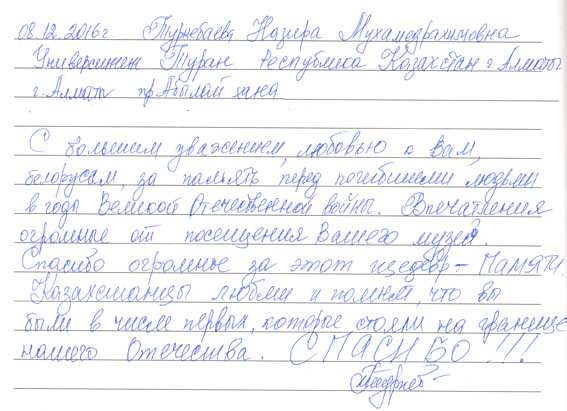 08.12.2016г. Турнебаева Назира Мухамедрахимовна
Университет Туран Республика Казахстан г. Алматы
г. Алматы пр Абылай хана
С большим уважением, любовью к Вам,
белорусам, за память перед погибшими людьми
в годы Великой Отечественной войны. Впечатления
огромные от посещения Вашего музея.
Спасибо огромные за этот шедевр - ПАМЯТИ.
Казахстанцы любим и помним, что вы
были в числе первых, которые стояли на границе
нашего Отечества. СПАСИБО!!!